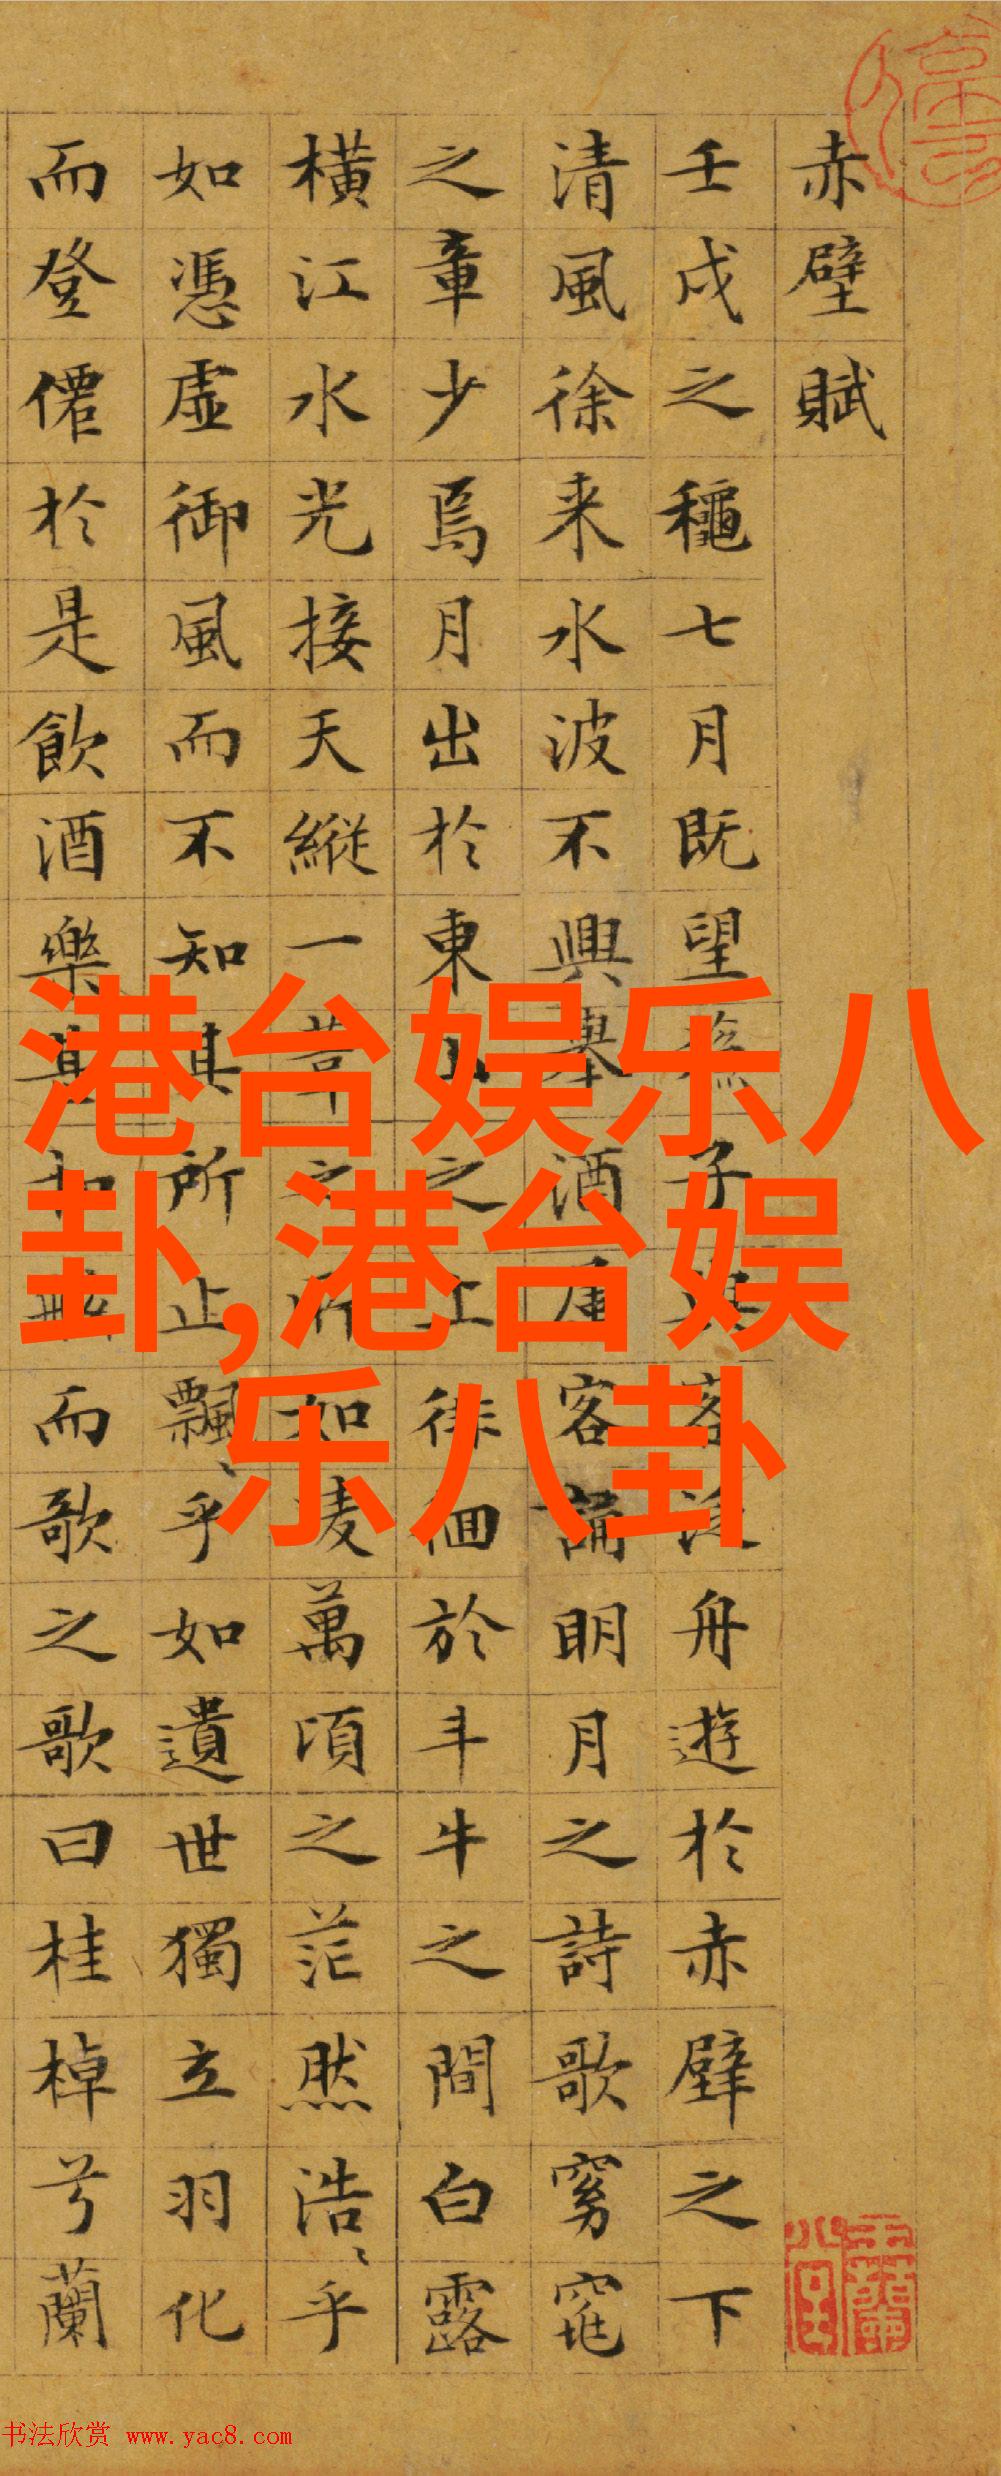 赤壁賦
壬戌之龝七月既望蘇子與客泛舟遊於赤壁之下
清風徐来水波不興舉酒屬客誦明月之詩歌窈窕
之章少焉月出於東山之上徘徊於斗牛之間白露
橫江水光接天縱一葦之所如凌萬頃之茫然浩、乎
如憑虛御風而不知其所止飄、乎如遺世獨立羽化
而登僊於是飲酒樂甚扣舷而歌之歌曰桂棹兮蘭
港台娱乐八
卦,港台娱
乐八卦
书法欣赏 www.yac8.com